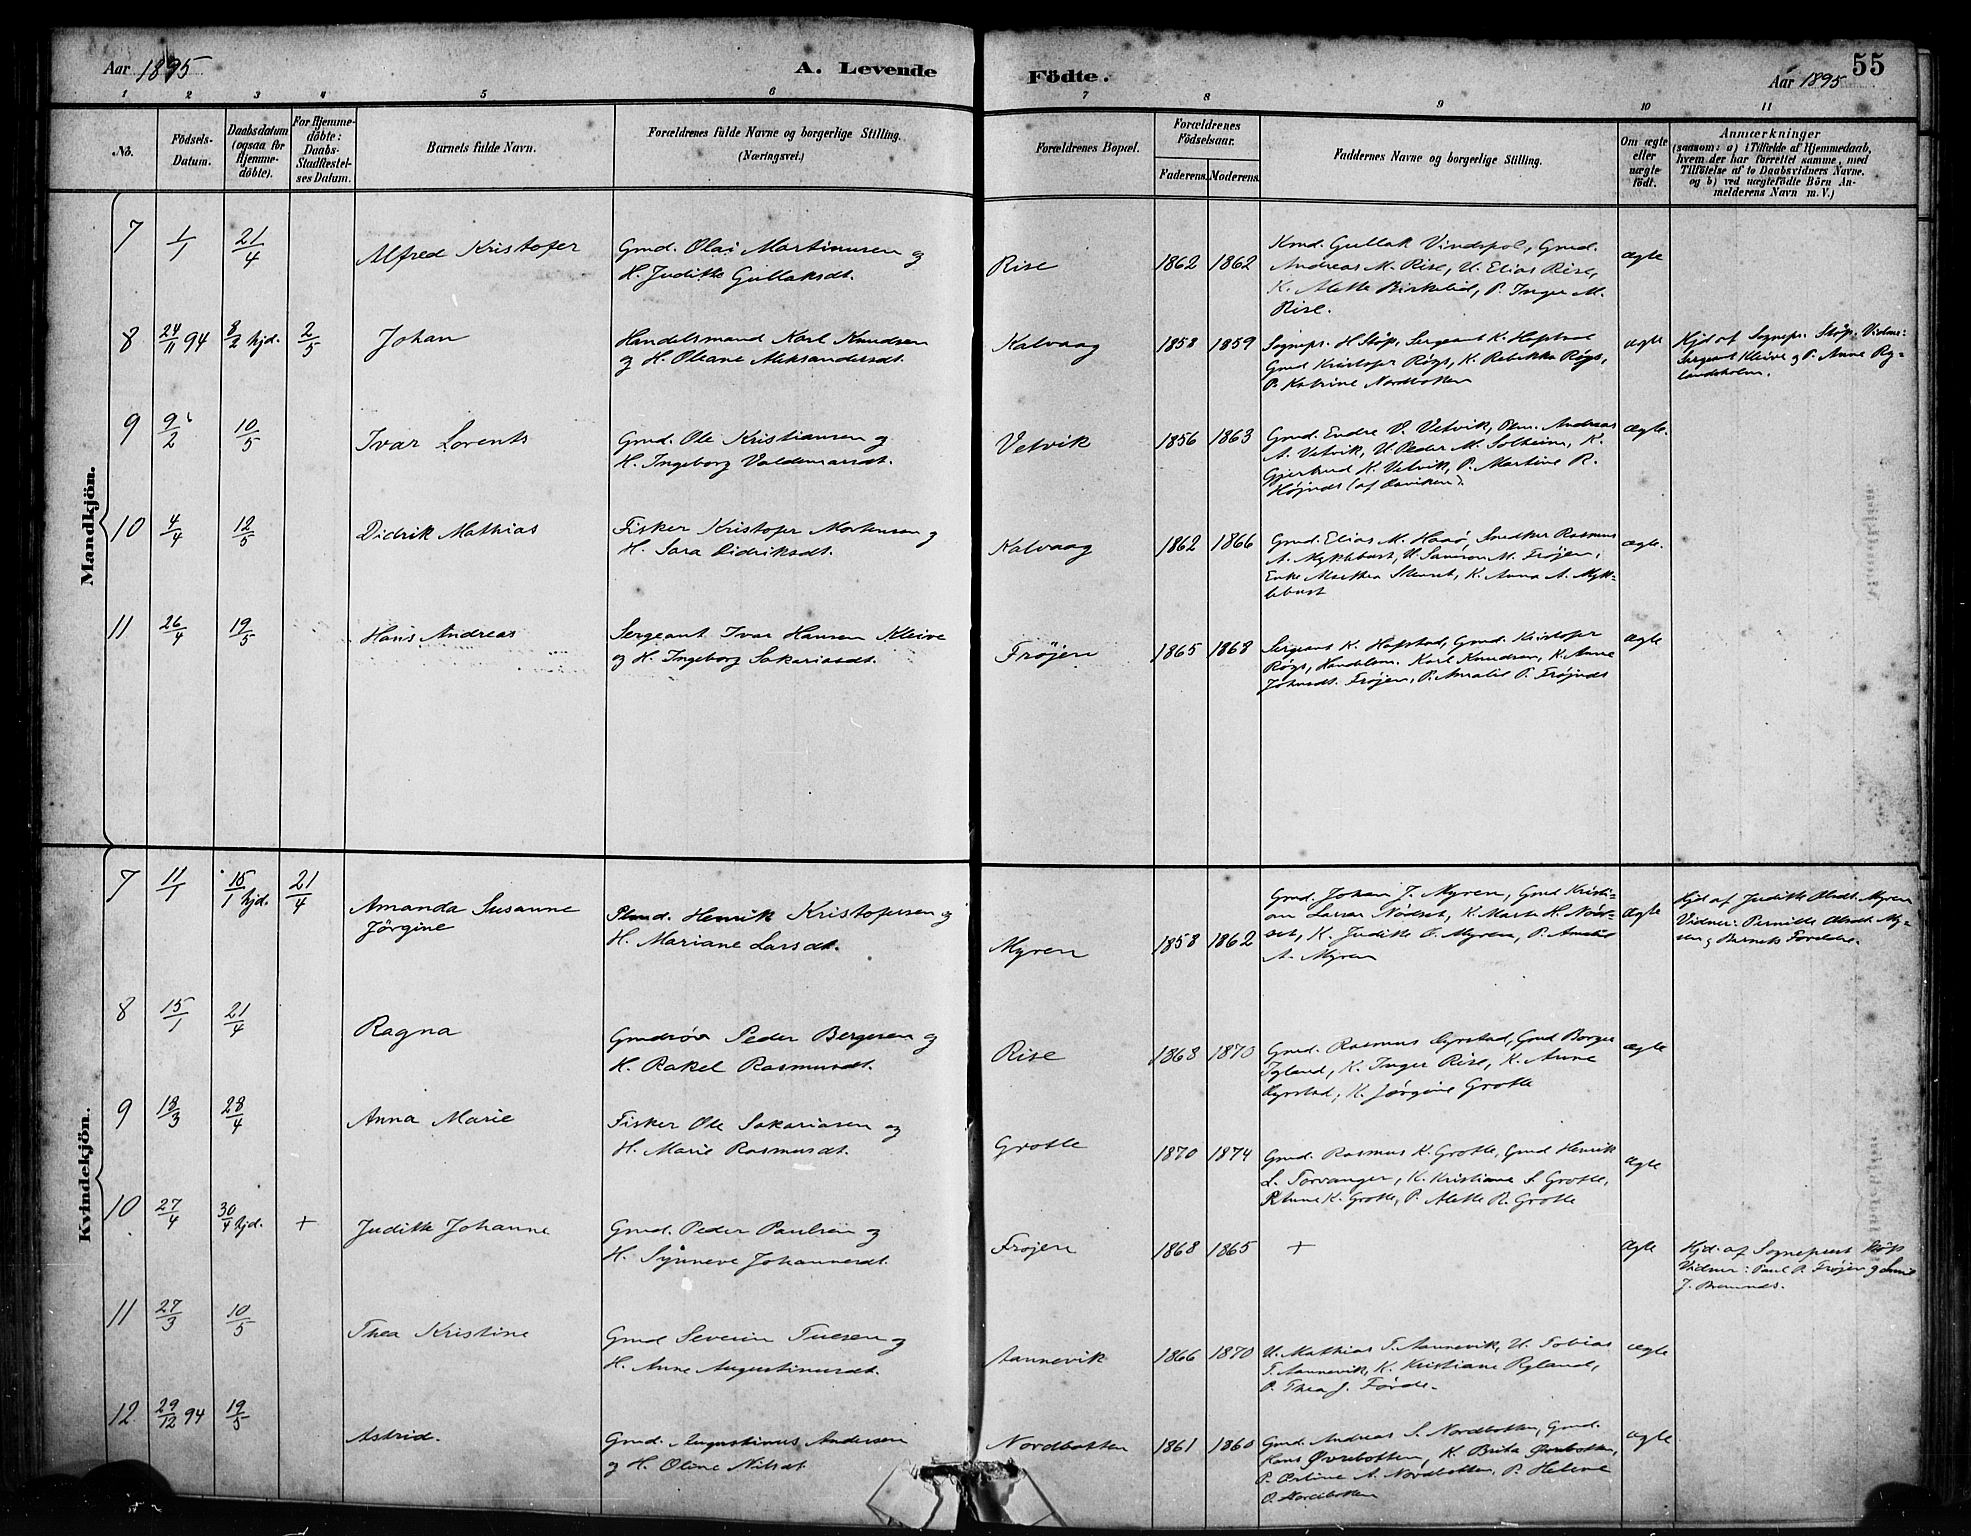 Aar 1895 A. Levende Födte. Aar 1895 55
1 2 3 4 5 6 7 8 9 10 11
No.
Födsels-Datum.
Daabsdatum (ogsaa for Hjemme-döbte).
For Hjemme-döbte: Daabs-Stadfæstel-ses Datum.
Barnets fulde Navn.
Forældrenes fulde Navne og borgerlige Stilling. (Næringsvei.)
Forældrenes Bopæl.
Forældrenes Födselsaar.
Faderens. Moderens.
Faddernes Navne og borgerlige Stilling.
Om ægte eller uægte födt.
Anmærkninger
(saasom: a) i Tilfælde af Hjemmedaab,
hvem der har forrettet samme, med
Tilföielse af to Daabsvidners Navne.
og b) ved uægtefödte Börn An-
melderens Navn m. V.)
Mandkjön.
7 1/1 21/4 Alfred Kristofer
Gmd. Olai Martinusen og
H. Judithe Gullaksdt.
Rise 1862 1862
Kmd. Gullak Vindspol, Gmd.
Andreas M. Rise, U. Elias Rise,
K. Alette Birkelid, P. Inger M.
Rise.
ægte
8 24/11 94 8/2 hjd. 2/5 Johan
Handelsmand Karl Knudsen
og H. Oleane Aleksandersdt.
Kalvaag 1858 1859
Sognepr. H. Støp, Sergeant K. Hopstad
Gmd Kristofer Røys, K. Rebekka Røys,
P. Katrine Nordbotten
ægte
Hjd af Sognepr. Støp. Vidne:
Sergeant Kleive og P. Anne Ry-
landsholm.
9 9/2 10/5 Ivar Lorents
Gmd. Ole Kristiansen og
H. Ingeborg Valdemarsdt.
Vetvik 1856 1863
Gmd. Endre O. Vetvik, Plm. Andreas
A. Vetvik, U. Peder M. Solheim, K.
Gjertrud K. Vetvik, P. Martine R.
ægte.
10 4/4 12/5 Didrik Mathias
Fisker Kristofer Mortensen og
H. Sara Didriksdt.
Kalvaag 1862 1866
Gmd. Elias M. Haaø, Snedker Rasmus
A. Myklebust, U. Samson M. Frøjen,
Enke Marthea Stenset, K. Anna A. Myk-
lebust
ægte.
11 26/4 19/5 Hans Andreas
Sergeant Ivar Hansen Kleive
og H. Ingeborg Sakariasdt.
Frøjen 1865 1868
Sergeant K. Hopstad, Gmd. Kristofer
Røys, Handelsm. Karl Knudsen, K. Anne
Johnsdt. Frøjen, P. Amalie P. Frøjnds
ægte
Kvindekjön.
7 11/1 15/1 hjd. 21/4 Amanda Susanne
Jörgine
Plmd. Henrik Kristofersen og
H. Mariane Larsdt.
Myren 1858 1862
Gmd. Johan J. Myren, Gmd Kristi-
an Larsen Nødset, K. Marta H. Nød-
set, K. Judithe O. Myren, P. Amalie
A. Myren
ægte
Hjd af Judithe Olsdt. Myren
Vidner: Pernille Olsdt. My-
ren og Barnets Forældre.
8 15/1 21/4 Ragna
Peder Bergesen og
H. Rakel Rasmusdt.
Rise 1868 1870
Gmd. Rasmus Gyrstad, Gmd Borger
Ryland, K. Inger Rise, K. Anne
Gyrstad, K. Jørgine Grotle
ægte
9 18/3 28/4 Anna Marie
Fisker Ole Sakariasen og
H. Marie Rasmusdt.
Grotle 1870 1874
Gmd. Rasmus K. Grotle, Gmd Henrik
L. Torvanger, K. Kristiane S. Grotle,
P. Anne K. Grotle, P. Alette R. Grotle
ægte
10 27/4 30/4 hjd. + Judithe Johanne
Gmd. Peder Paulsen og
H. Synneve Johannesdt.
Frøjen 1868 1865 +
ægte
Hjd. af Sogneprest Støp
Vidner: Paul P. Frøjen og
11 27/3 10/5 Thea Kristine
Gmd Severin Tuesen og
H. Anne Augustinusdt.
Aannevik 1866 1870
U. Mathias T. Aannevik, U. Tobias
T. Aannevik, K. Kristiane Ryland,
P. Thea J. Førde.
ægte
12 29/12 94 19/5 Astrid.
Gmd. Augustinus Andersen
og H. Oline Nilsdt.
Nordbotten 1861 1860
Gmd. Andreas S. Nordbotten, Gmd.
Hans Øvrebotten, K. Brita Øvrebotten,
P. A. Nordbotten, P. Helene
O. Nordbotten
ægte